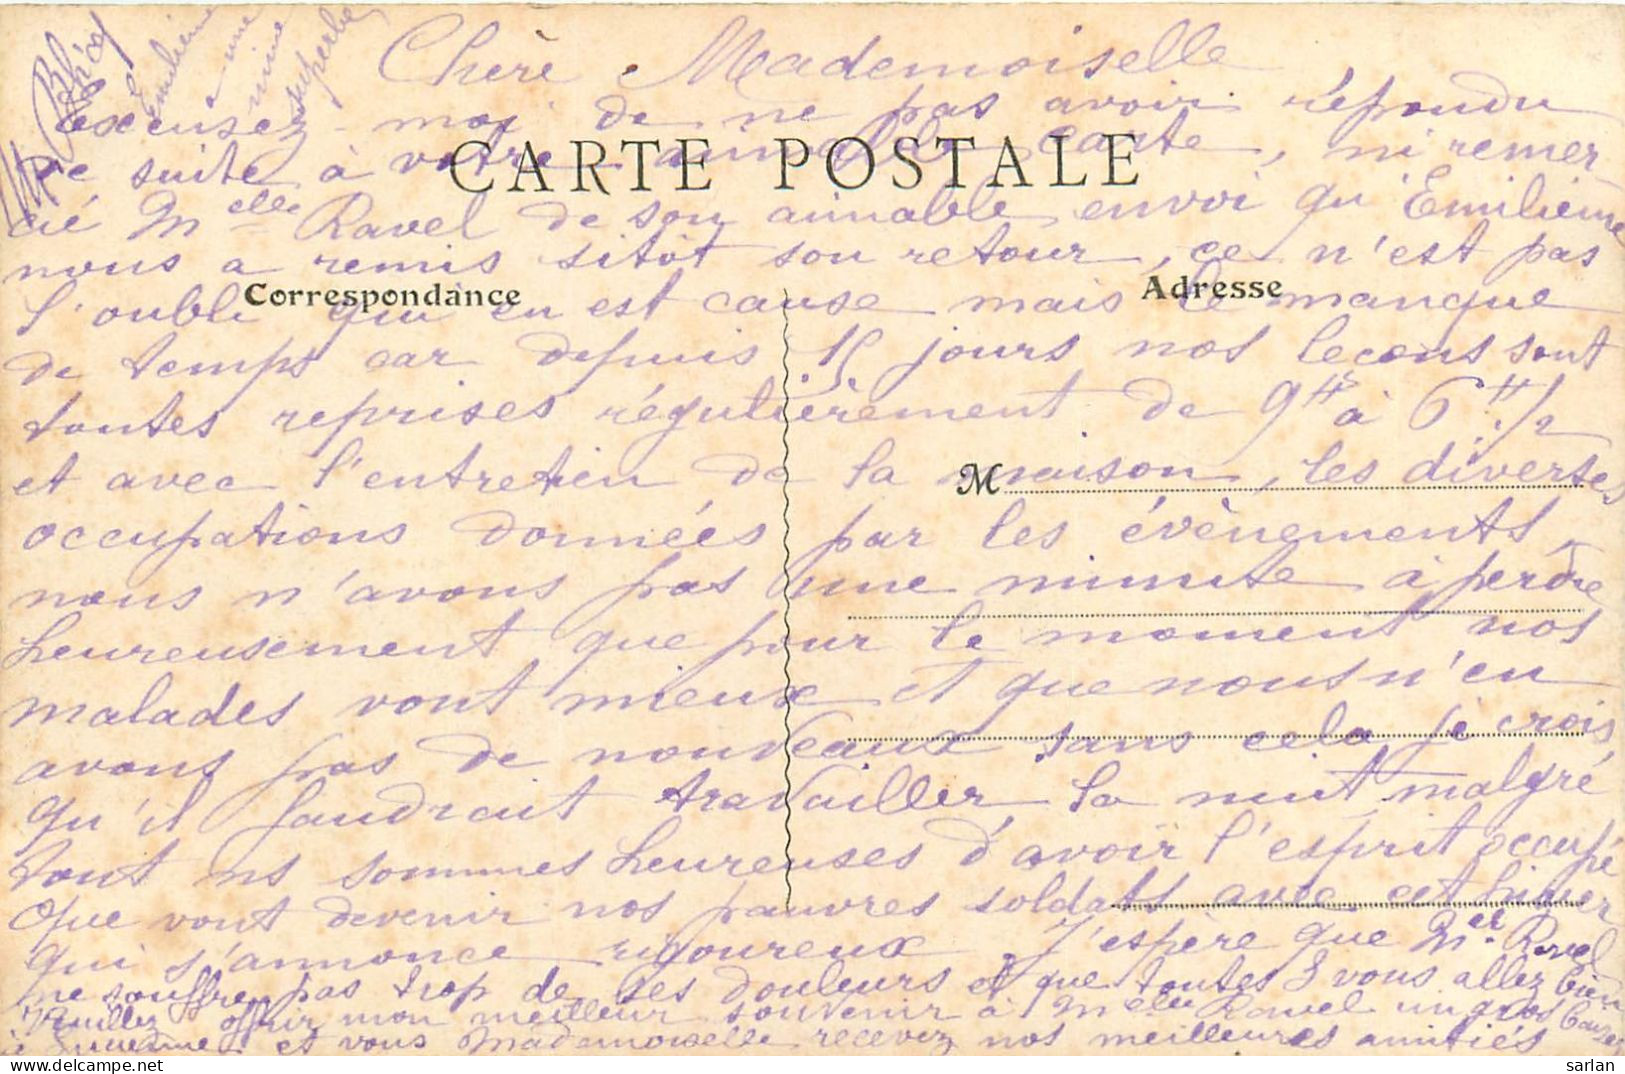 Emilienne
a une
mine
superbe
Chère Mademoiselle
Excusez-moi de ne pas avoir répondu
CARTE POSTALE
de suite à votre aimable carte, ni remer-
cié Melle Ravel de son aimable envoi qu'Emilienne
nous a remis sitôt son retour, ce n'est pas
Correspondance
Adresse
l'oubli qui en est cause mais le manque
de temps car depuis 15 jours nos leçons sont
toutes reprises régulièrement de 9Hs à 6H 1/2
M
et avec l'entretien de la maison, les diverses
occupations données par les évènements
nous n'avons pas une minute à perdre
heureusement que pour le moment nos
malades vont mieux et que nous n'en
avons pas de nouveaux sans cela je crois
qu'il faudrait travailler la nuit, malgré
tout ns sommes heureuses d'avoir l'esprit occupé
Que vont devenir nos pauvres soldats avec cet hiver
qui s'annonce rigoureux. J'espère que Mer Ravel
ne souffre pas trop de ses douleurs et que toutes 3 vous allez bien
Veuillez offrir mon meilleur souvenir à Melle Ravel un gros baiser
à et vous Mademoiselle recevez nos meilleures amitiés
sarlan